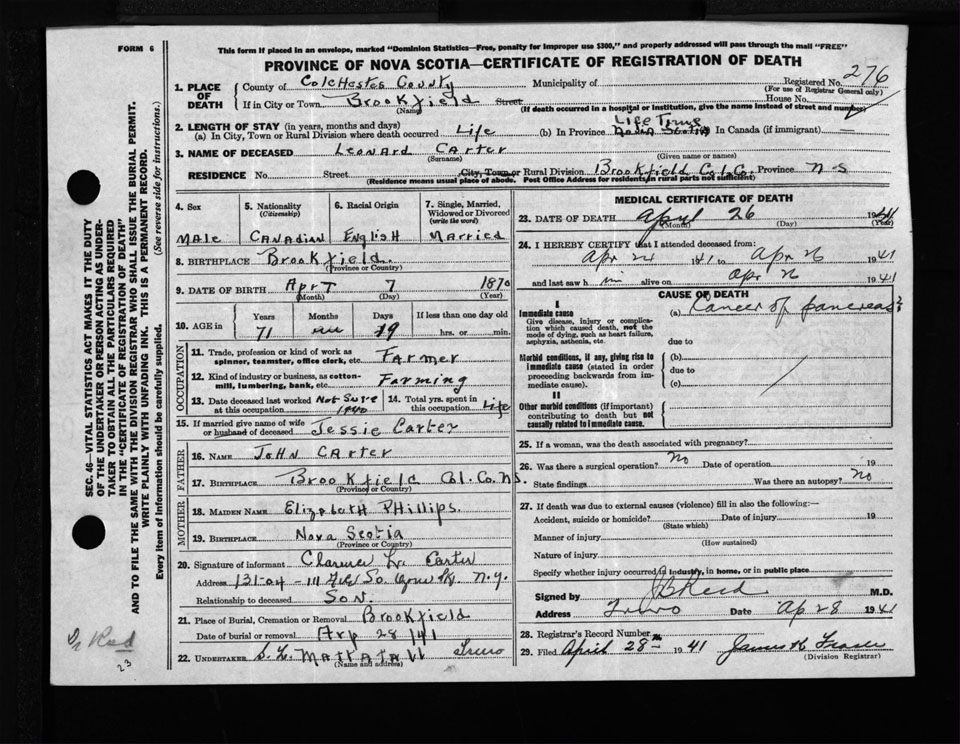 FORM 6
This form if placed in an envelope, marked "Dominion Statistics—Free, penalty for improper use $300," and properly addressed will pass through the mail "FREE"
PROVINCE OF NOVA SCOTIA—CERTIFICATE OF REGISTRATION OF DEATH
Registered No. 276
(For use of Registrar General only)
1. PLACE OF DEATH
County of Colchester County Municipality of
If in City or Town Brookfield Street House No.
(Name) (If death occurred in a hospital or institution, give the name instead of street and number)
2. LENGTH OF STAY (in years, months and days)
(a) In City, Town or Rural Division where death occurred Life (b) In Province Life Time Nova Scotia In Canada (if immigrant) —
3. NAME OF DECEASED Leonard Carter
(Surname) (Given name or names)
RESIDENCE No. Street City, Town or Rural Division Brookfield Col. Co. Province N-S
(Residence means usual place of abode. Post Office Address for residents in rural parts not sufficient)
4. Sex
Male
5. Nationality
(Citizenship)
Canadian
6. Racial Origin
English
7. Single, Married, Widowed or Divorced
(write the word)
Married
8. BIRTHPLACE Brookfield.
(Province or Country)
9. DATE OF BIRTH 7 1870
(Month) (Day) (Year)
10. AGE in
Years Months Days If less than one day old
71 19 hrs. or min.
OCCUPATION
11. Trade, profession or kind of work as spinner, teamster, office clerk, etc. Farmer
12. Kind of industry or business, as cotton-mill, lumbering, bank, etc. Farming
13. Date deceased last worked at this occupation Not Sure 1940
14. Total yrs. spent in this occupation Life
15. If married give name of wife or husband of deceased Jessie Carter
FATHER
16. NAME John Carter
17. BIRTHPLACE Brookfield Col. Co. N.S.
(Province or Country)
MOTHER
18. MAIDEN NAME Elizabeth Phillips.
19. BIRTHPLACE Nova Scotia
(Province or Country)
20. Signature of informant Clarence L. Carter
Address 131-04-111 So. N.Y.
Relationship to deceased Son.
21. Place of Burial, Cremation or Removal Brookfield
Date of burial or removal Arp 28/41
22. UNDERTAKER S. L. Mattatall Truro
(Name and address)
MEDICAL CERTIFICATE OF DEATH
23. DATE OF DEATH April 26 1941
(Month) (Day) (Year)
24. I HEREBY CERTIFY that I attended deceased from:
Apr 24 1941 to Apr 26 1941
and last saw him alive on Apr 26 1941
CAUSE OF DEATH
I
Immediate cause
Give disease, injury or complication which caused death, not the mode of dying, such as heart failure, asphyxia, asthenia, etc.
(a) Cancer of pancreas
due to
Morbid conditions, if any, giving rise to immediate cause (stated in order proceeding backwards from immediate cause).
(b)
due to
(c)
II
Other morbid conditions (if important) contributing to death but not causally related to immediate cause.
25. If a woman, was the death associated with pregnancy?
26. Was there a surgical operation? No Date of operation 19
State findings Was there an autopsy? No
27. If death was due to external causes (violence) fill in also the following:—
Accident, suicide or homicide? Date of injury 19
(State which)
Manner of injury
(How sustained)
Nature of injury
Specify whether injury occurred in industry, in home, or in public place
Signed by J B Reid M.D.
Address Truro Date Ap 28 1941
28. Registrar's Record Number
29. Filed April 28th 1941 James K Fraser
(Division Registrar)
SEC. 46—VITAL STATISTICS ACT MAKES IT THE DUTY OF THE UNDERTAKER OR PERSON ACTING AS UNDERTAKER TO OBTAIN ALL THE PARTICULARS REQUIRED IN THE "CERTIFICATE OF REGISTRATION OF DEATH" AND TO FILE THE SAME WITH THE DIVISION REGISTRAR WHO SHALL ISSUE THE BURIAL PERMIT.
WRITE PLAINLY WITH UNFADING INK. THIS IS A PERMANENT RECORD.
Every item of Information should be carefully supplied. (See reverse side for instructions.)
Dr Reid
23